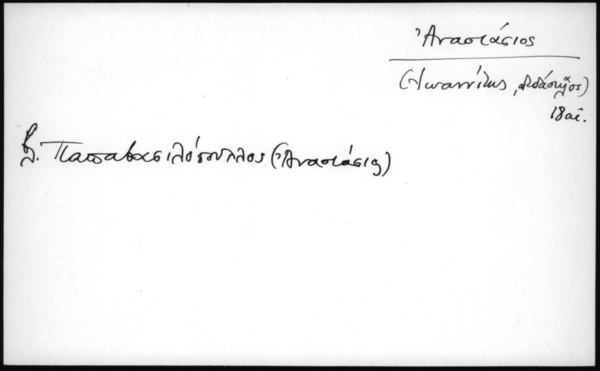 Ἀναστάσιος
(Ἰωαννίτης, διδάσκαλος)
18 αἰ.
βλ. Παπαβασιλόπουλος (Ἀναστάσιος)